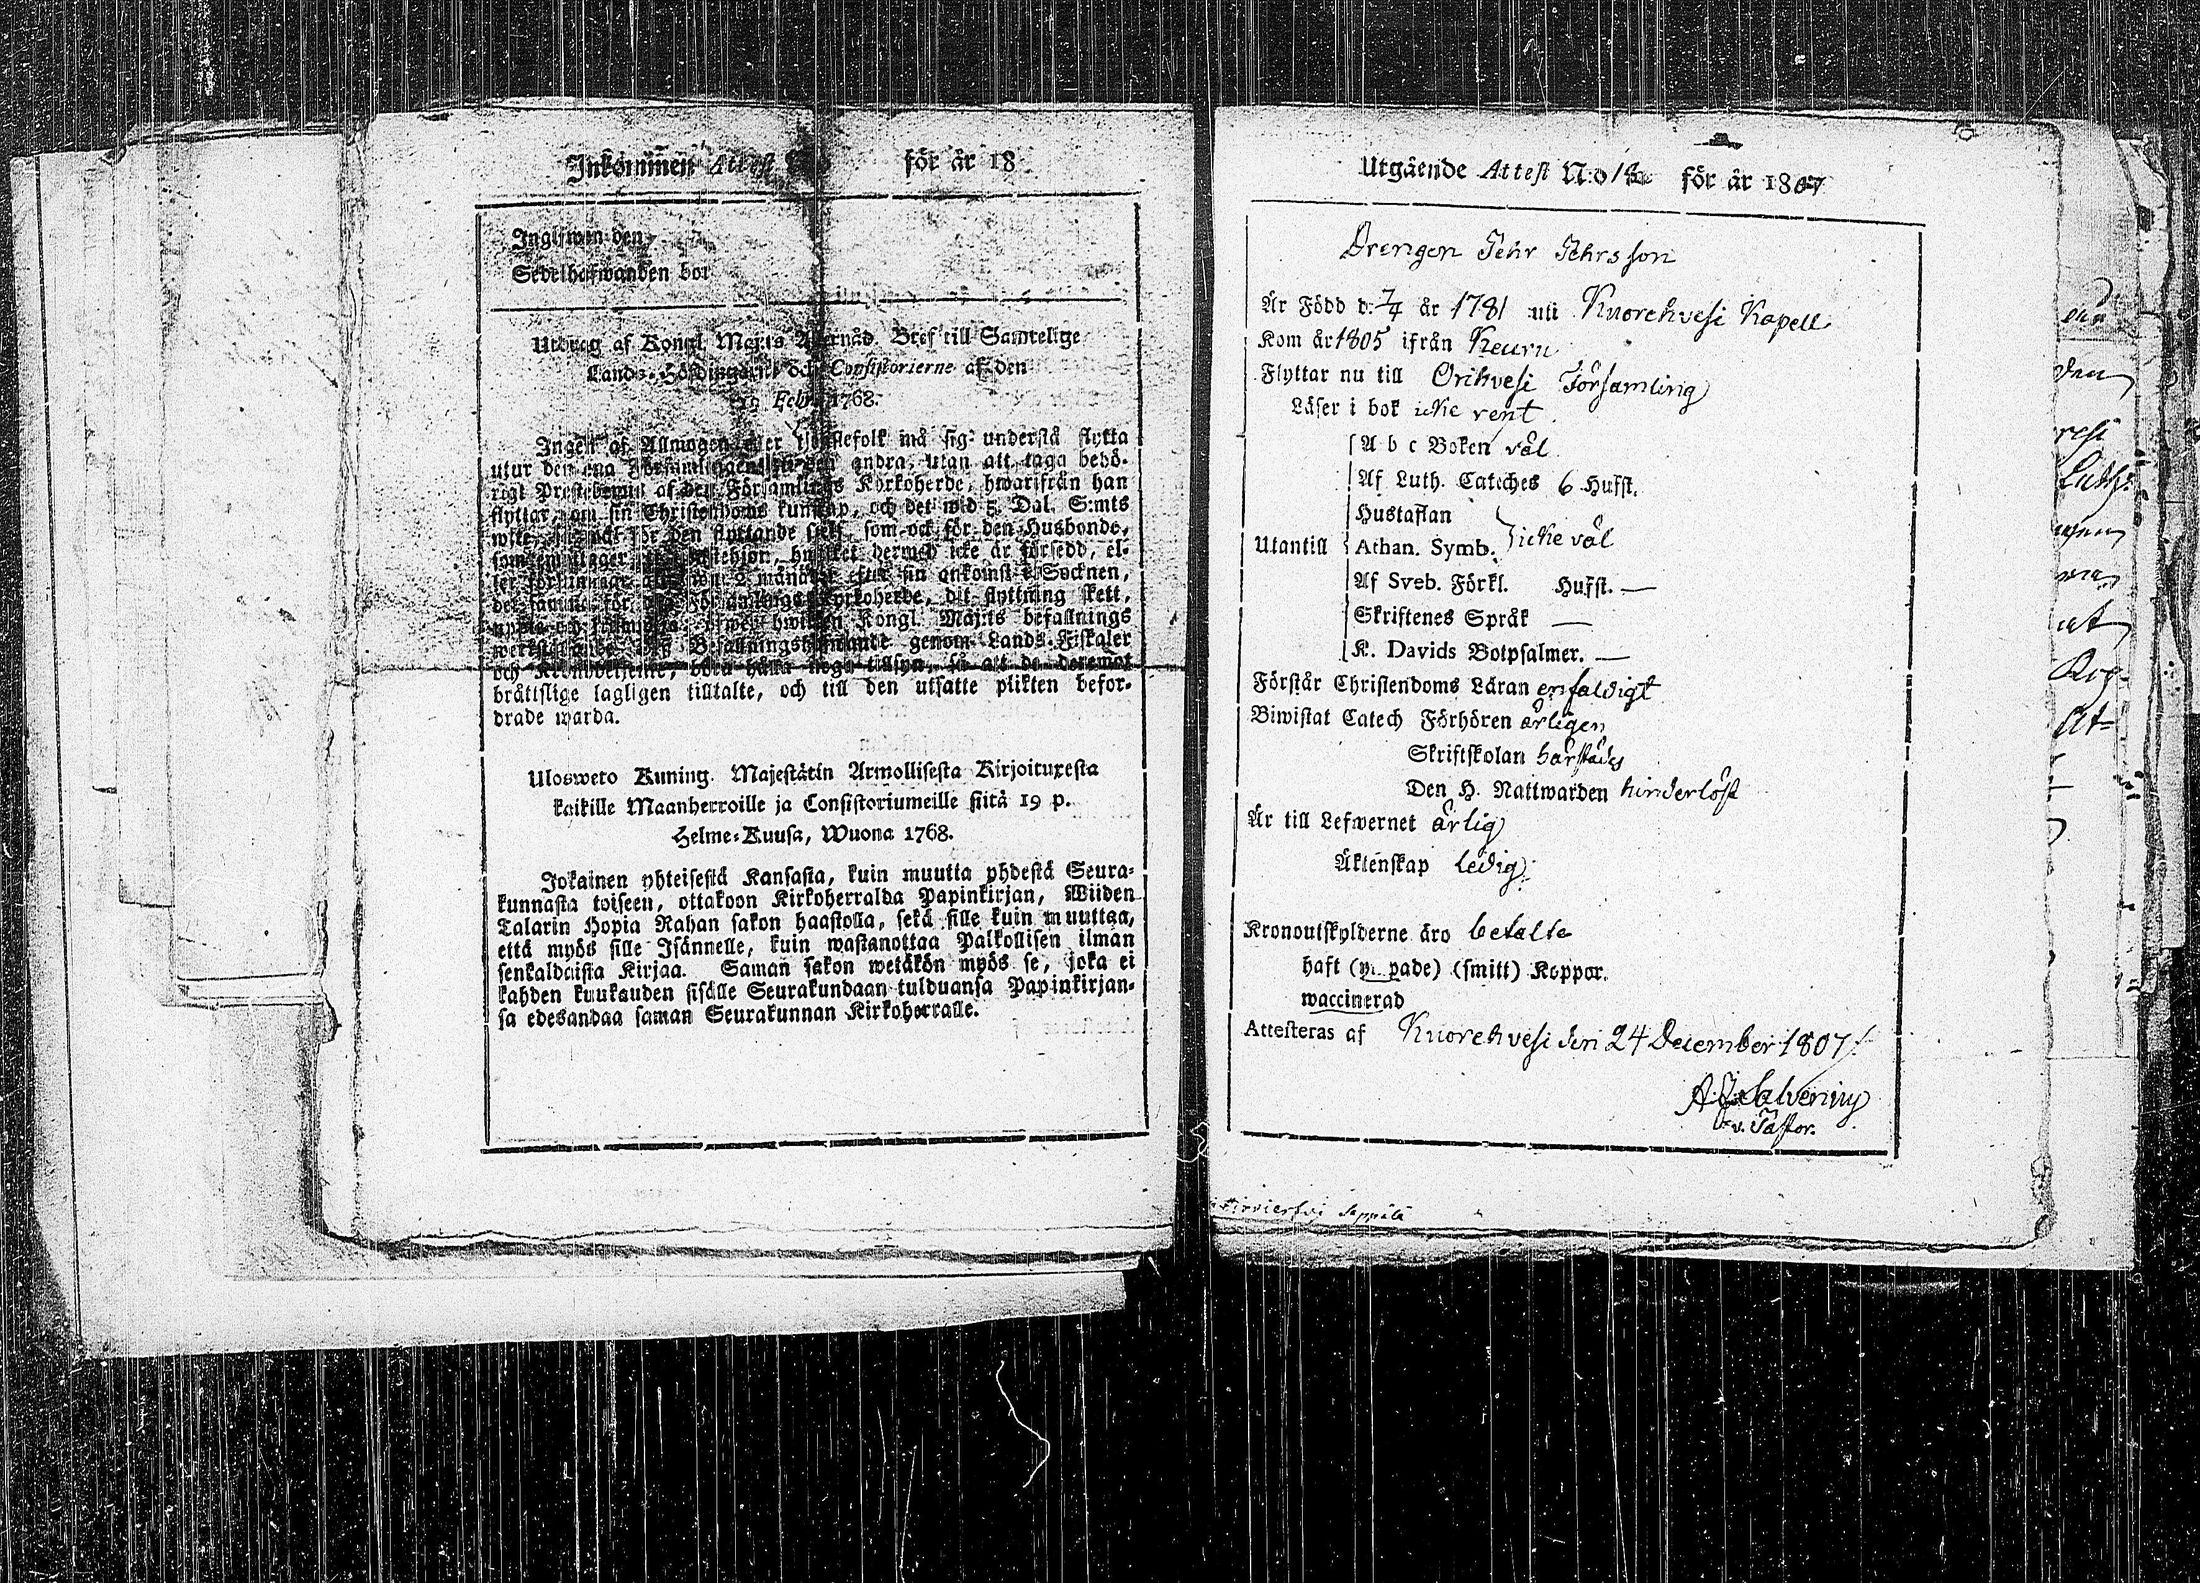 Inkommen Attest för år 18
Ingifwen den
Sedelhafwanden bor
Utdrag af Kongl. Maj:ts Bref till Samtelige
Lands-Höfdingarne och Consistorierne af den
19 Febr. 1768.
Ingen af Allmogen eller tjenstefolk må sig understå flytta
utur den ena Församlingen andra, utan att taga behö-
rigt Prestebewis af den Församlings Kyrkoherde, hwarifrån han
flyttar, om sin Christendoms kunskap, och det wid 5 Dal. S:mts
wite, för den flyttande sielf, som ock för den Husbonde,
som emottager hwilket dermed icke är försedd, el-
ler försummar 2 månader efter sin ankomst i Socknen,
det samma för Församlings Kyrkoherde, dit flyttning skett,
hwilken Kongl. Maj:ts befallnings
Befallningshafwande genom Lands-Fiskaler
och noga tillsyn, så att de deremot
bråttslige lagligen tilltalte, och till den utsatte plikten befor-
drade warda.
Ulosweto Kuning. Majestätin Armollisesta Kirjoituxesta
kaikille Maanherroille ja Consistoriumeille siitä 19 p.
Helme-Kuusa, Wuona 1768.
Jokainen yhteisestä Kansasta, kuin muutta yhdestä Seura-
kunnasta toiseen, ottakoon Kirkoherralda Papinkirjan, Wiiden
Talarin Hopia Rahan sakon haastolla, sekä sille kuin muuttaa,
että myös sille Isännelle, kuin wastanottaa Palkollisen ilman
senkaldaista Kirjaa. Saman sakon wetäkön myös se, joka ei
kahden kuukauden sisälle Seurakundaan tulduansa Papinkirjan-
sa edesandaa saman Seurakunnan Kirkoherralle.
Utgående Attest N:o för år 1807
Drengen Pehr Pehrsson
Är Född d. 7/4 år 1781 uti Kuorehvesi Kapell
Kom år 1805 ifrån Keuru
Flyttar nu till Orihvesi Församling
Läser i bok icke rent
A b c Boken väl
Af Luth. Cateches 6 Hufst.
Hustaflan
Utantill Athan. Symb. icke väl
Af Sveb. Förkl. Hufst. —
Skriftenes Språk —
K. Davids Botpsalmer. —
Förstår Christendoms Läran enfaldigt
Biwistat Catech Förhören årligen
Skriftskolan härstädes
Den H. Nattwarden hinderlöst
Är till Lefwernet ärlig
Äktenskap ledig
Kronoutskylderne äro betalte
haft (ympade) (smitt) Koppor.
waccinerad
Attesteras af Kuorehvesi den 24 December 1807
v. Pastor.
Seppälä